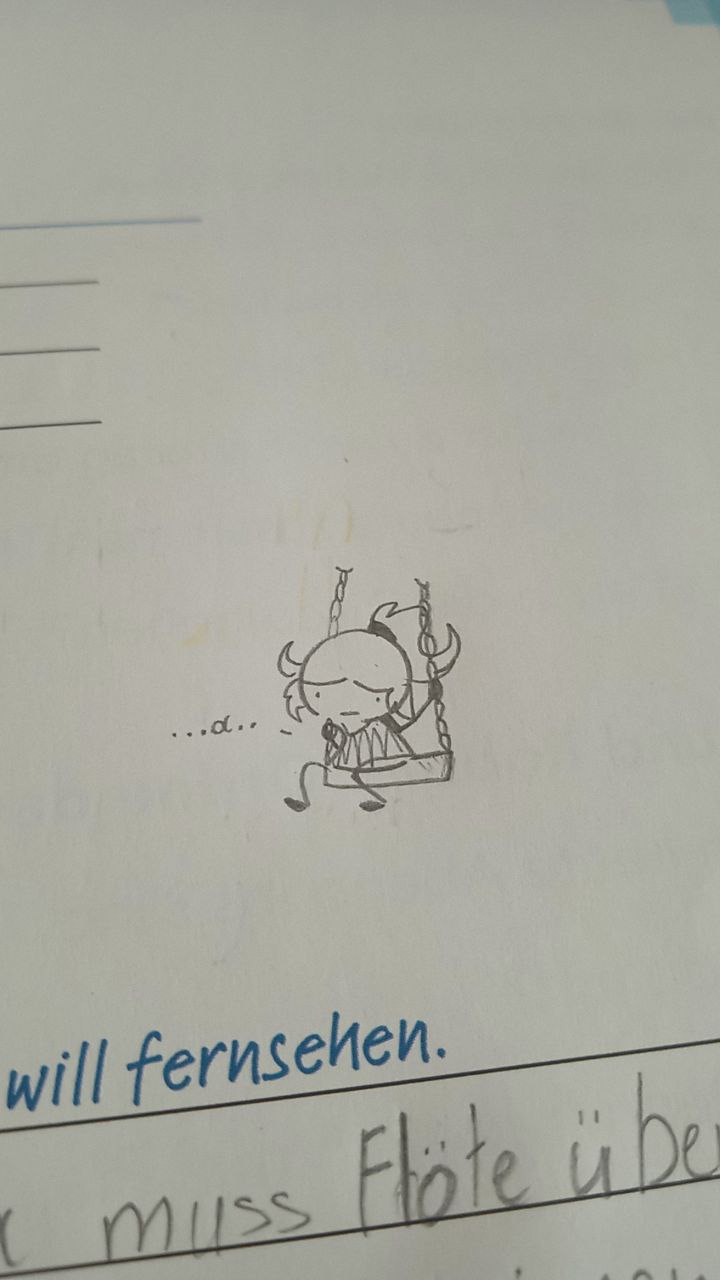 ...a..
will fernsehen.
muss Flöte übe